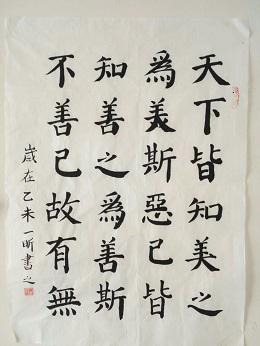 天下皆知美之
爲美斯惡已皆
知善之爲善斯
不善已故有無
歲在乙未一昕書之